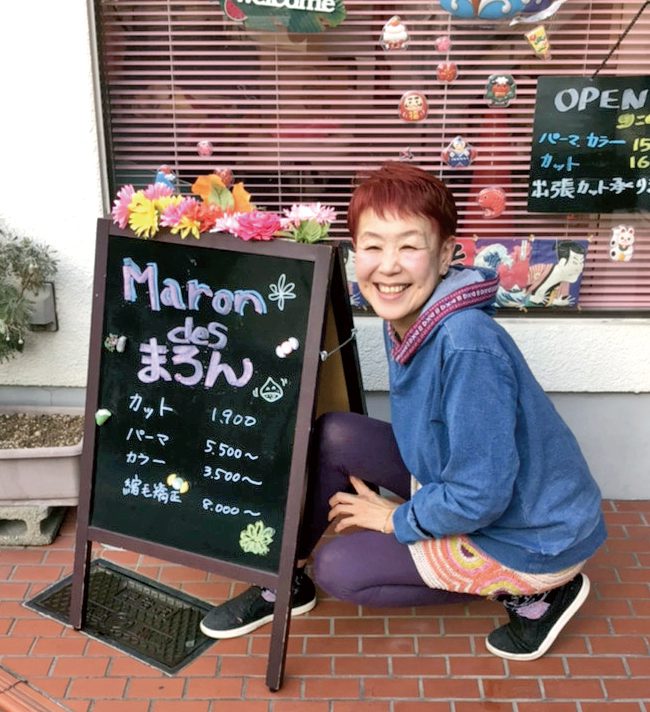 welcome
OPEN
パーマ カラー 15
カット 16
出張カット承り
Maron
des
まろん
カット 1,900
パーマ 5,500〜
カラー 3,500〜
縮毛矯正 8,000〜
福